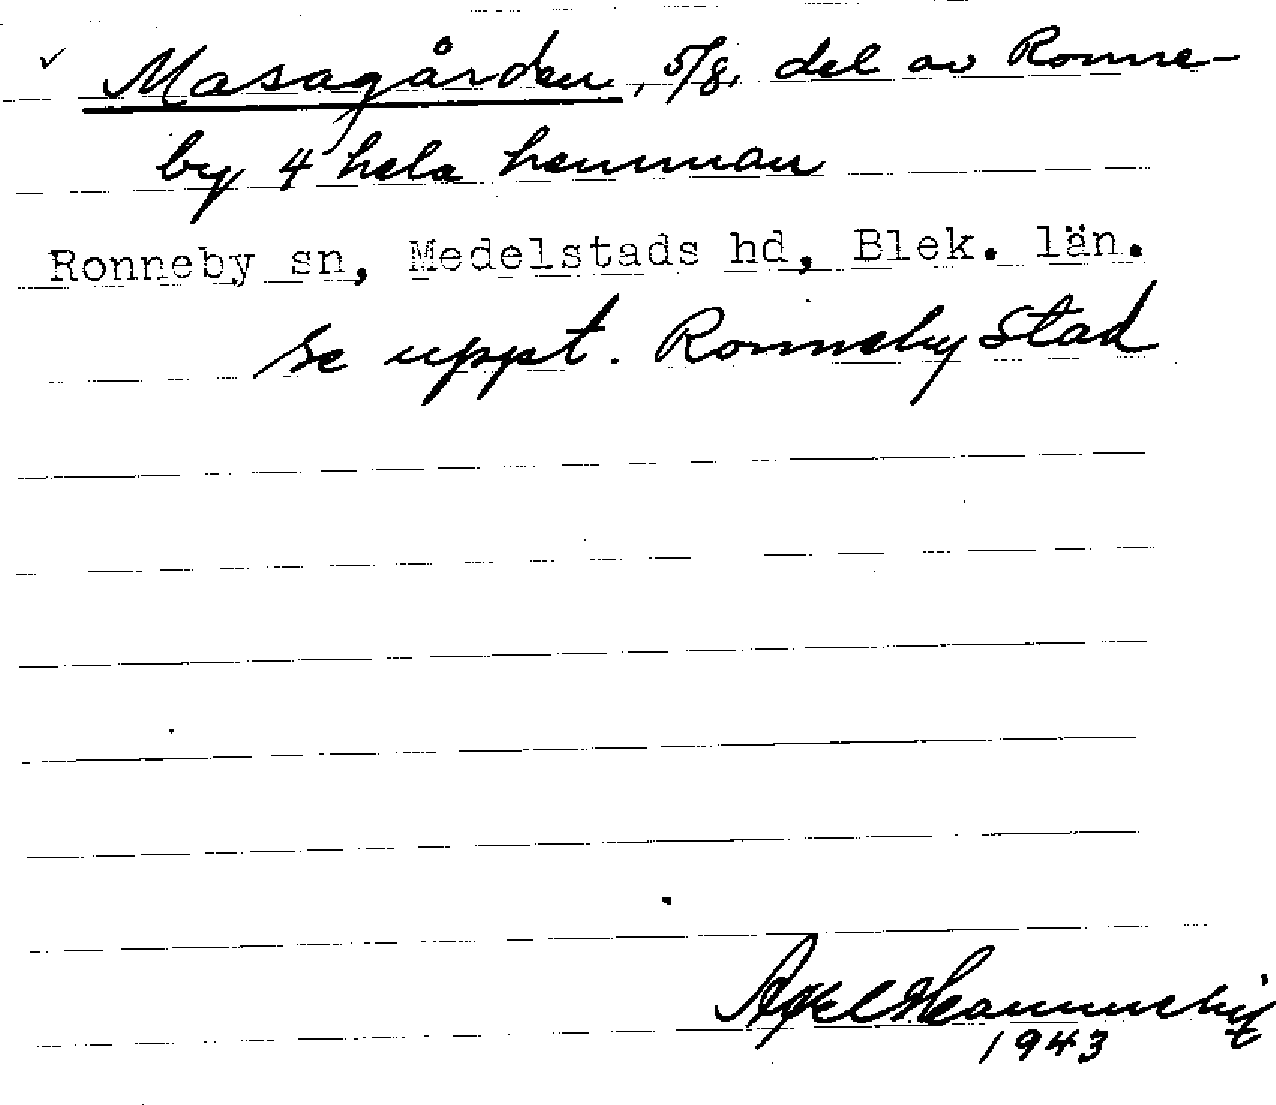 ✓ Masagården, 5/8 del av Ronne-
by 4 hela hemman
Ronneby sn, Medelstads hd, Blek. län.
se uppt. Ronneby stad
Axel
1943